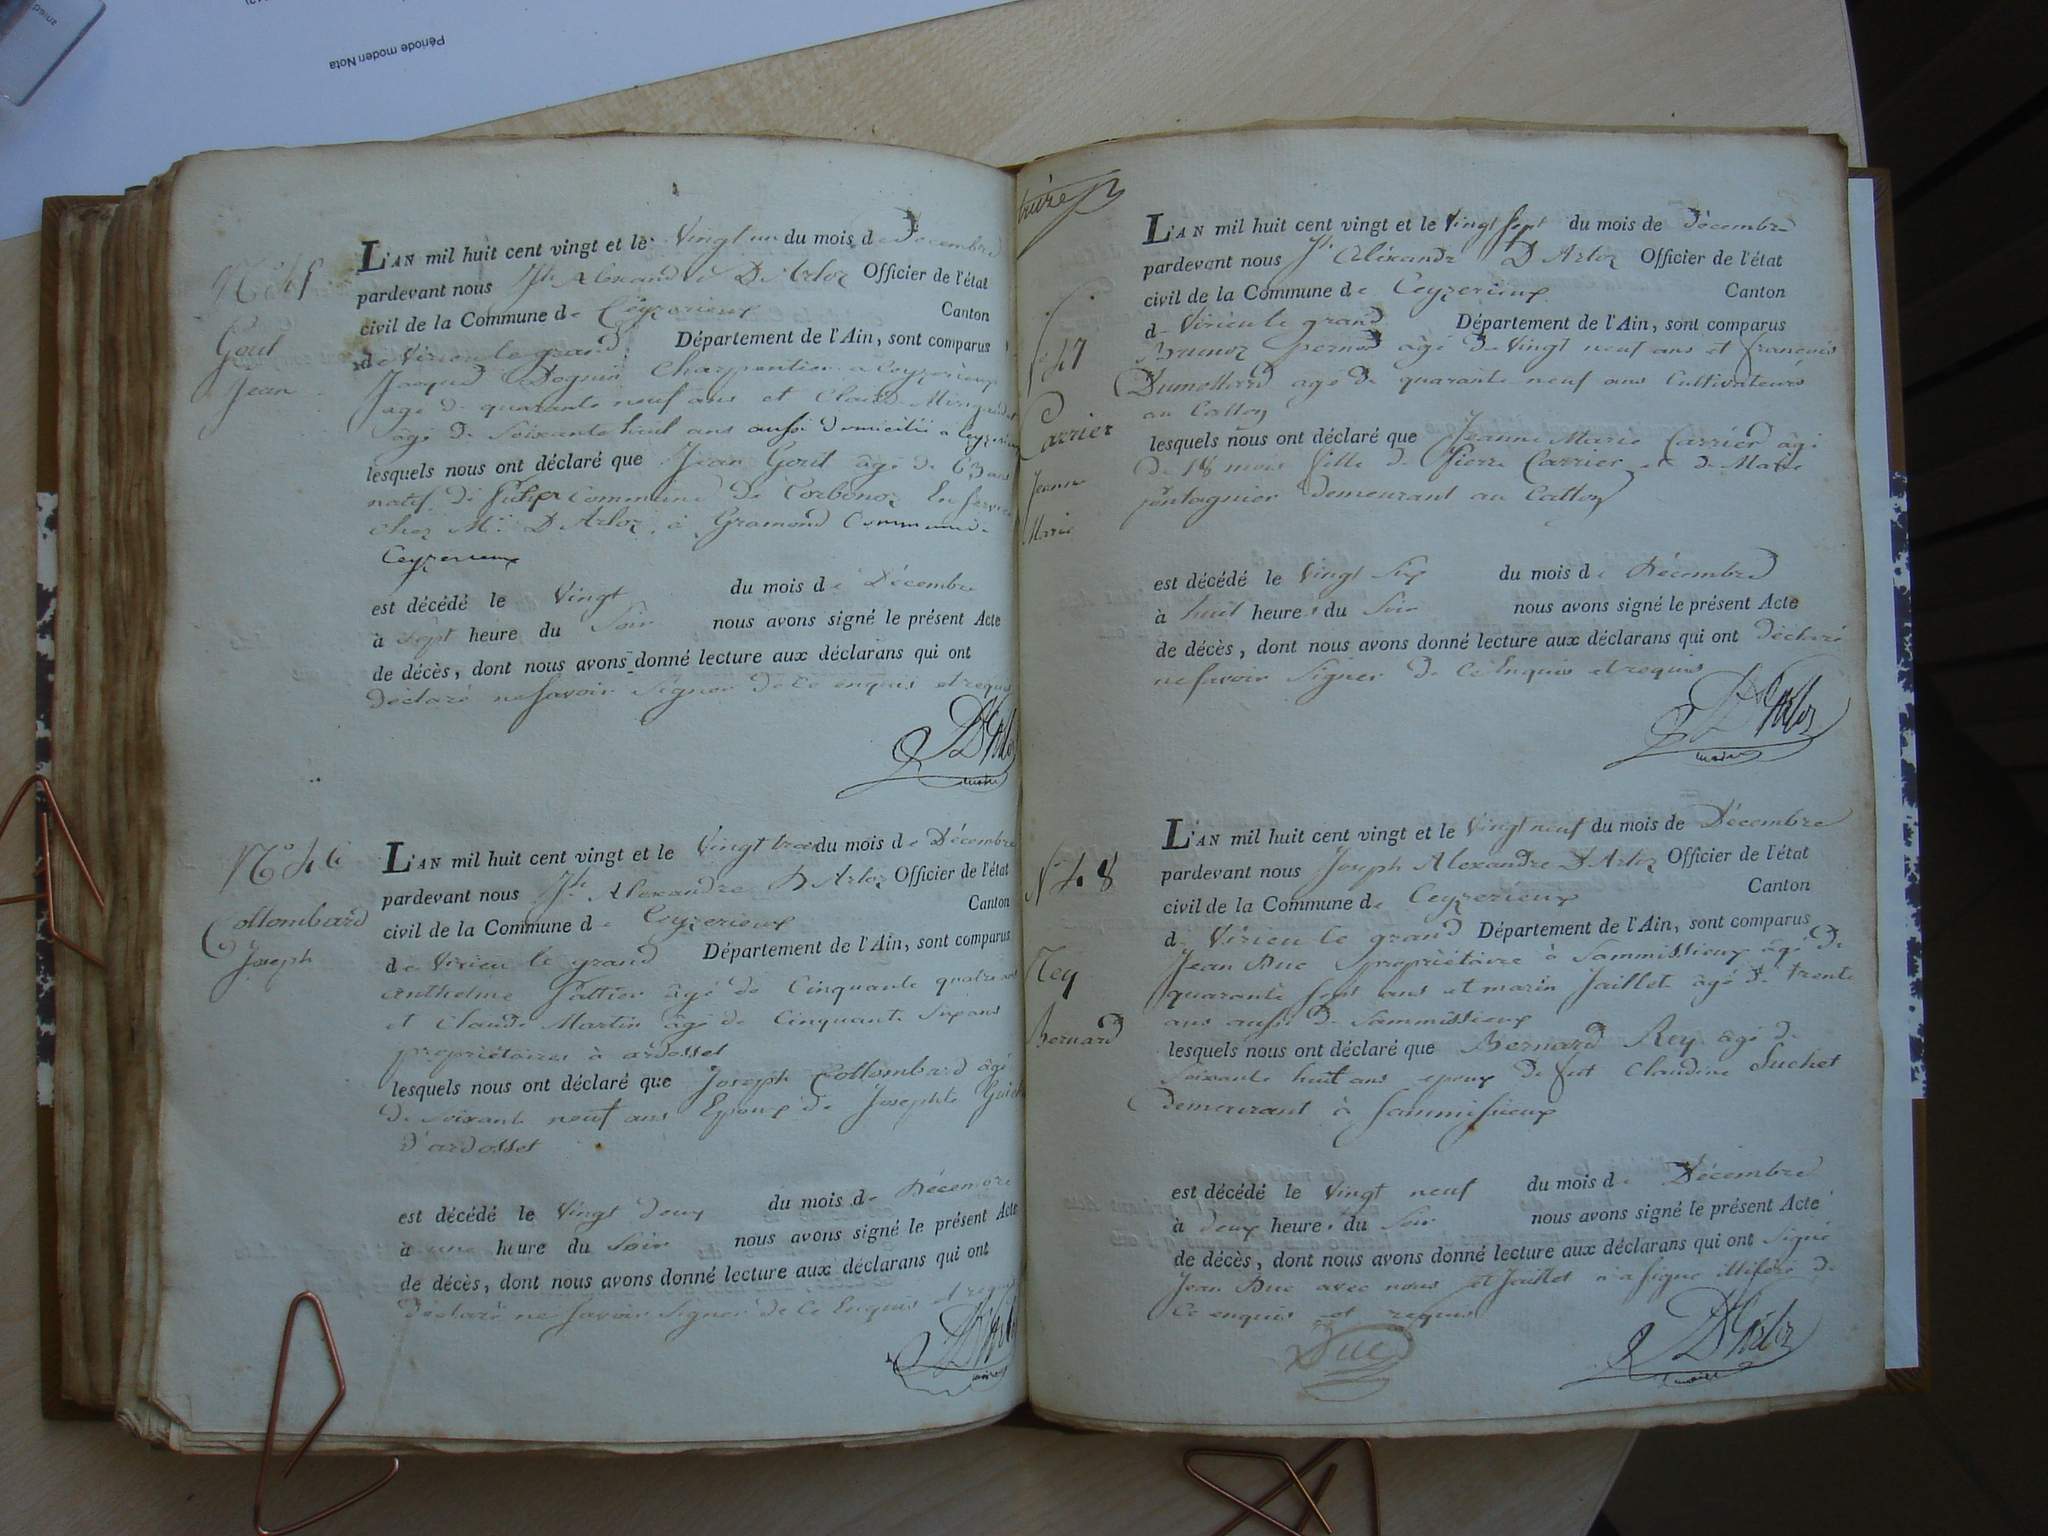 Période moderi Nota
N.° 45
Gout
Jean
L'AN mil huit cent vingt et le Vingt un du mois de Décembre
pardevant nous Jh Alexandre D'Arloz Officier de l'état
civil de la Commune de Ceyzerieux Canton
de Virieu le grand Département de l'Ain, sont comparus
Jacques Charpentier a Ceyzerieux
agé de quarante neuf ans et Claude
âgé de Soixante huit ans aussi domicilié a Ceyzerieux
lesquels nous ont déclaré que Jean Gout âgé de 63 ans
natif de Commune de Corbonoz En service
chez Mr. D'Arloz, à Gramond Commune de
Ceyzerieux
est décédé le Vingt du mois de Décembre
à sept heure du Soir nous avons signé le présent Acte
de décès, dont nous avons donné lecture aux déclarans qui ont
déclaré ne savoir Signer de ce enquis et requis
D'Arloz
maire
N.° 46
Collombard
Joseph
L'AN mil huit cent vingt et le Vingt trois du mois de Décembre
pardevant nous Jh. Alexandre D'Arloz Officier de l'état
civil de la Commune de Ceyzerieux Canton
de Virieu le grand Département de l'Ain, sont comparus
Anthelme Pattier âgé de Cinquante quatre ans
et Claude Martin âgé de Cinquante Six ans
propriétaires à ardosset
lesquels nous ont déclaré que Joseph Collombard âgé
de soixante neuf ans Epoux de Josephte
d'ardosset
est décédé le Vingt deux du mois de Décembre
à une heure du Soir nous avons signé le présent Acte
de décès, dont nous avons donné lecture aux déclarans qui ont
déclaré ne savoir Signer de Ce Enquis et requis
D'Arloz
maire
47
Carrier
Jeanne
Marie
L'AN mil huit cent vingt et le Vingt Sept du mois de Décembre
pardevant nous Jh Alexandre D'Arloz Officier de l'état
civil de la Commune de Ceyzerieux Canton
de Virieu le grand Département de l'Ain, sont comparus
Brunoz pernod âgé de Vingt neuf ans et françois
Dumollard agé de quarante neuf ans Cultivateurs
au Catton
lesquels nous ont déclaré que Jeanne Marie Carrier âgé
de 18 mois fille de Pierre Carrier et de Marie
pontagnier demeurant au Catton
est décédé le Vingt Six du mois de Décembre
à huit heures du Soir nous avons signé le présent Acte
de décès, dont nous avons donné lecture aux déclarans qui ont déclaré
ne savoir Signer de Ce Enquis et requis
D'Arloz
maire
N° 48
Rey
Bernard
L'AN mil huit cent vingt et le Vingt neuf du mois de Décembre
pardevant nous Joseph Alexandre D'Arloz Officier de l'état
civil de la Commune de Ceyzerieux Canton
de Virieu le grand Département de l'Ain, sont comparus
Jean Duc propriétaire à Sammissieux âgé de
quarante Sept ans et marin Jaillet âgé de trente
ans aussi de Sammissieux
lesquels nous ont déclaré que Bernard Rey âgé de
Soixante huit ans epoux de fut Claudine Suchet
demeurant à Sammissieux
est décédé le Vingt neuf du mois de Décembre
à deux heures du Soir nous avons signé le présent Acte
de décès, dont nous avons donné lecture aux déclarans qui ont Signé
Jean Duc avec nous et Jaillet n'a signe illiteré de
Ce enquis et requis
Duc
D'Arloz
maire